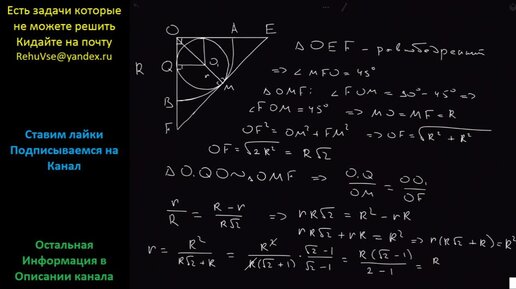 Есть задачи которые
не можете решить
Кидайте на почту
RehuVse@yandex.ru
Ставим лайки
Подписываемся на
Канал
Остальная
Информация в
Описании канала
O A E
R Q O₁
r M
B
F
△OEF - равнобедренный
⇒ ∠MFO = 45°
△OMF: ∠FOM = 90° - 45° ⇒
∠FOM = 45° ⇒ MO = MF = R
OF² = OM² + FM² ⇒ OF = √(R² + R²)
OF = √(2R²) = R√2
△O₁QO ~ △OMF ⇒ O₁Q/OM = OO₁/OF
r/R = (R - r)/(R√2) ⇒ rR√2 = R² - rR
rR√2 + rR = R² ⇒ r(R√2 + R) = R²
r = R²/(R√2 + R) = R²/(R(√2 + 1)) · (√2 - 1)/(√2 - 1) = R(√2 - 1)/(2 - 1) = R